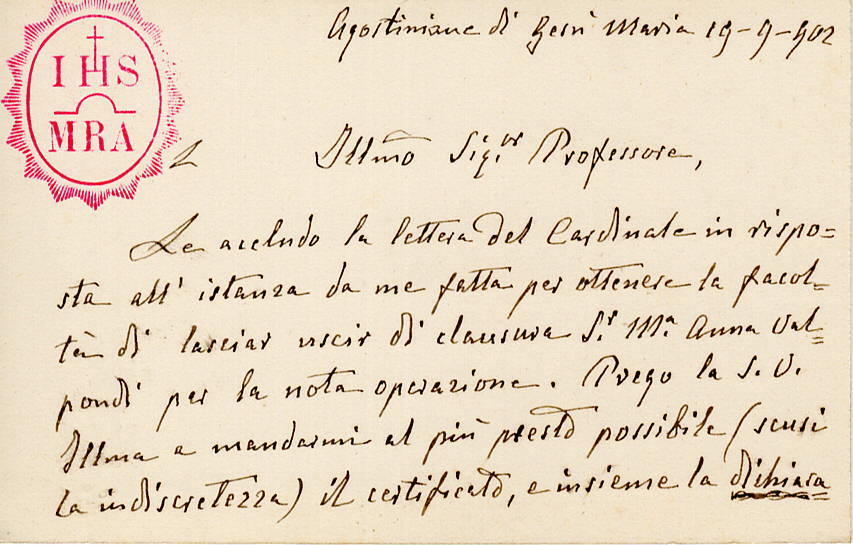 IHS
MRA
Agostiniane di Gesù Maria 19-9-902
Illmo Sig.or Professore,
Le accludo la lettera del Cardinale in rispo=
sta all' istanza da me fatta per ottenere la facol=
tà di lasciar uscir di clausura S.r M.a Anna Val=
pondi per la nota operazione. Prego la S. V.
Illma a mandarmi al più presto possibile (scusi
la indiscretezza) il certificato, e insieme la dichiara